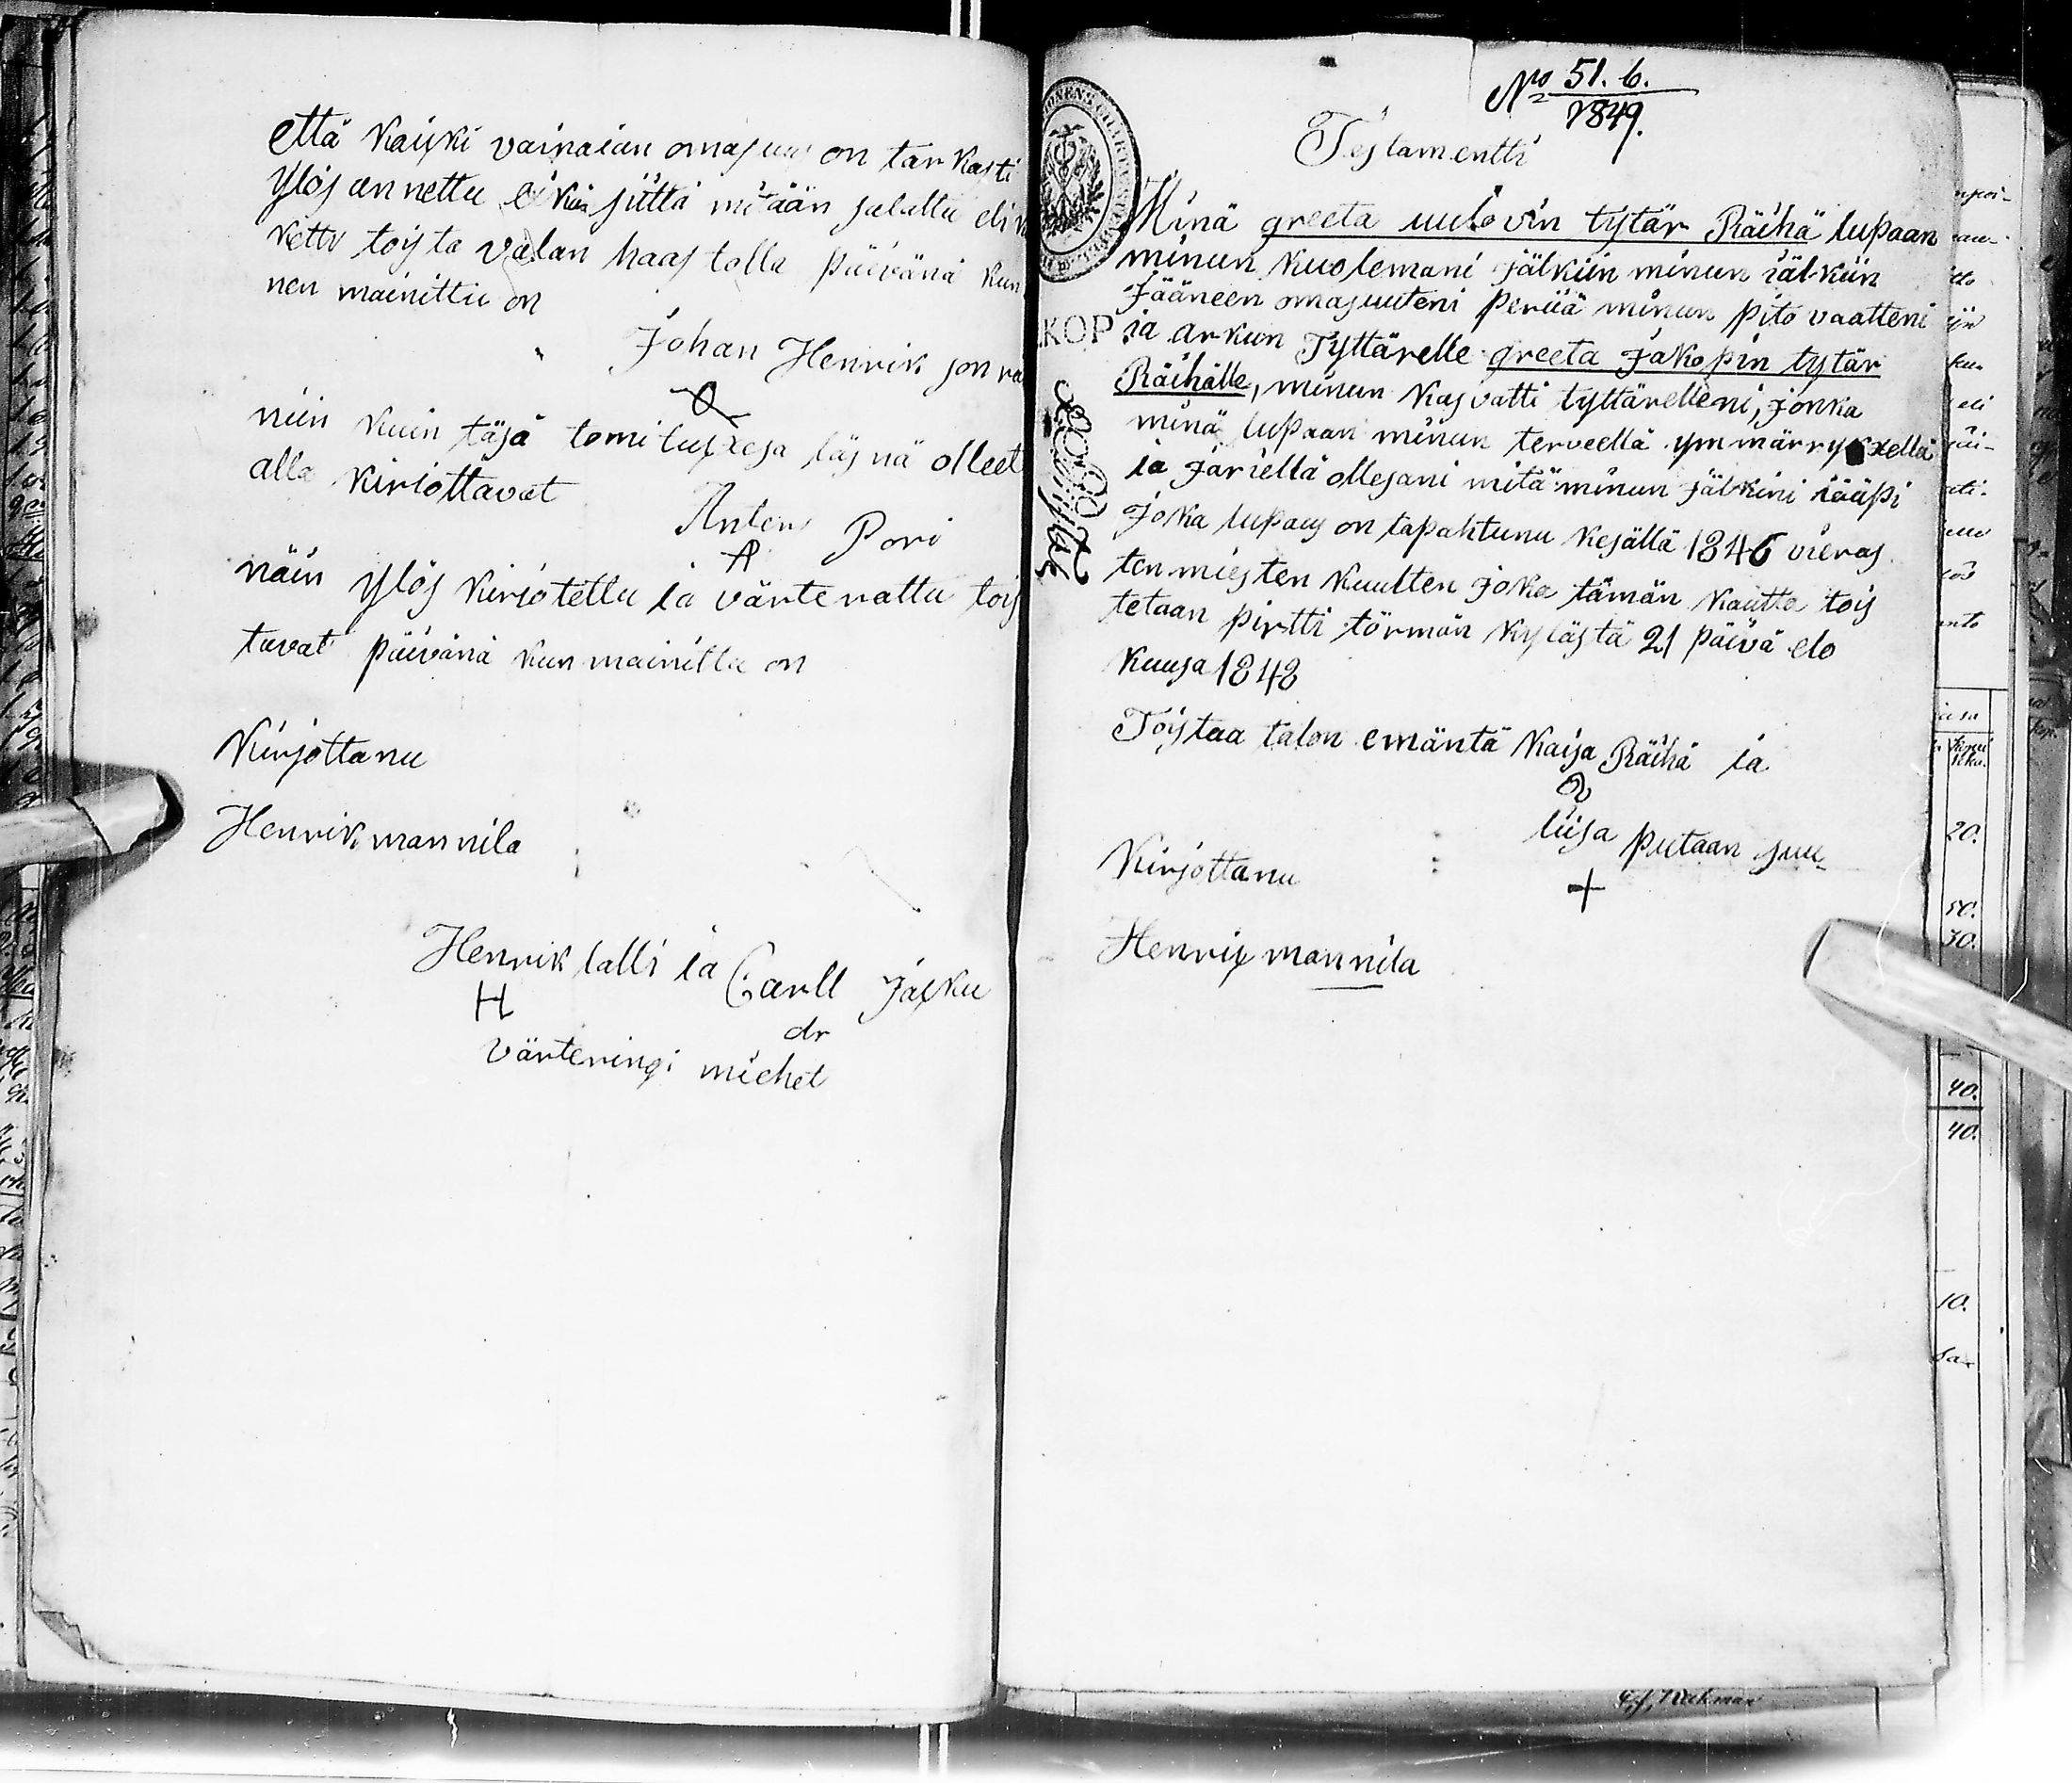 että kaixki vainaian omasuus on tarkasti
Ylös annettu eikä siittä mitään salattu eli
kettu toista valan haastolla päivänä kun
nen mainittu on
Johan Henrik son
niin kuin täsä tomituxesa läsnä olleet
alla kiriottavat
Anten Pori
näin ylös kiriotettu ia värterattu tois
tavat päivänä kun mainittu on
Kirjottanu
Henrik mannila
Henrik lalli ia Carll Jaxku
H
dr
värteringi miehet
No 51. 6.
1849.
Testamentti
Minä greeta uulovin tytär Räihä lupaan
minun kuolemani jälkiin minun iälkiin
Jääneen omasuuteni periiä minun pito vaatteni
KOP
ia arkun Tyttärelle greeta Jakopin tytär
Räihälle, minun kasvatti tyttärelleni, jonka
minä lupaan minun terveellä ymmärryxellä
ia järiellä ollesani mitä minun jälkini iääpi
Joka lupaus on tapahtunu kesällä 1846 vieras
ten miesten kuulten joka tämän kautta tois
tetaan pirtti törmän kylästä 21 päivä elo
kuusa 1848
Toistaa talon emäntä kaisa Räihä ia
liisa putaan suu
+
Kirjottanu
Henrix mannila
20.
50.
30.
40.
40.
10.